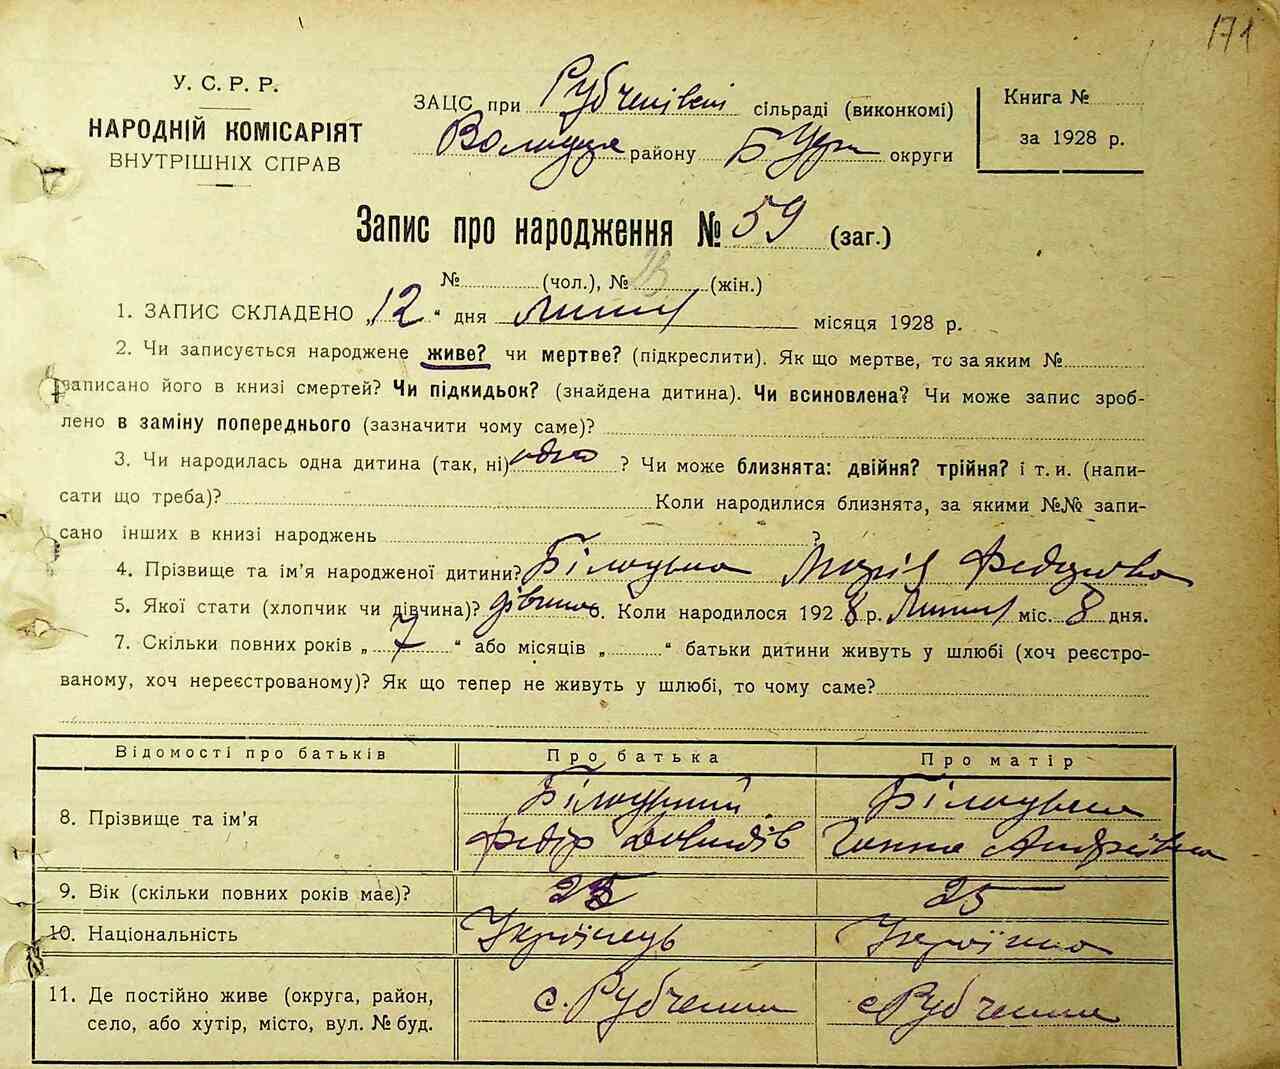 171
У. С. Р. Р.
НАРОДНІЙ КОМІСАРІЯТ
ВНУТРІШНІХ СПРАВ
ЗАЦС при Рубченській сільраді (виконкомі)
району Б Церк округи
Книга №
за 1928 р.
Запис про народження № 59 (заг.)
№ (чол.), № (жін.)
1. ЗАПИС СКЛАДЕНО „12“ дня липня місяця 1928 р.
2. Чи записується народжене живе? чи мертве? (підкреслити). Як що мертве, то за яким №
записано його в книзі смертей? Чи підкидьок? (знайдена дитина). Чи всиновлена? Чи може запис зроб-
лено в заміну попереднього (зазначити чому саме)?
3. Чи народилась одна дитина (так, ні) одна ? Чи може близнята: двійня? трійня? і т. и. (напи-
сати що треба)? Коли народилися близнята, за якими №№ запи-
сано інших в книзі народжень ?
4. Прізвище та ім'я народженої дитини? Білоцька Марія Федорівна
5. Якої стати (хлопчик чи дівчина)? дівчина 6. Коли народилося 1928 р. Липня міс. 8 дня.
7. Скільки повних років „ 7 “ або місяців „ “ батьки дитини живуть у шлюбі (хоч реєстро-
ваному, хоч нереєстрованому)? Як що тепер не живуть у шлюбі, то чому саме?
Відомості про батьків Про батька Про матір
8. Прізвище та ім'я
Білоцький Білоцька
Федір Давидів Ганна Андріївна
9. Вік (скільки повних років має)? 25
10. Національність Українець Українка
11. Де постійно живе (округа, район,
село, або хутір, місто, вул. № буд.
с. Рубченки с Рубченки